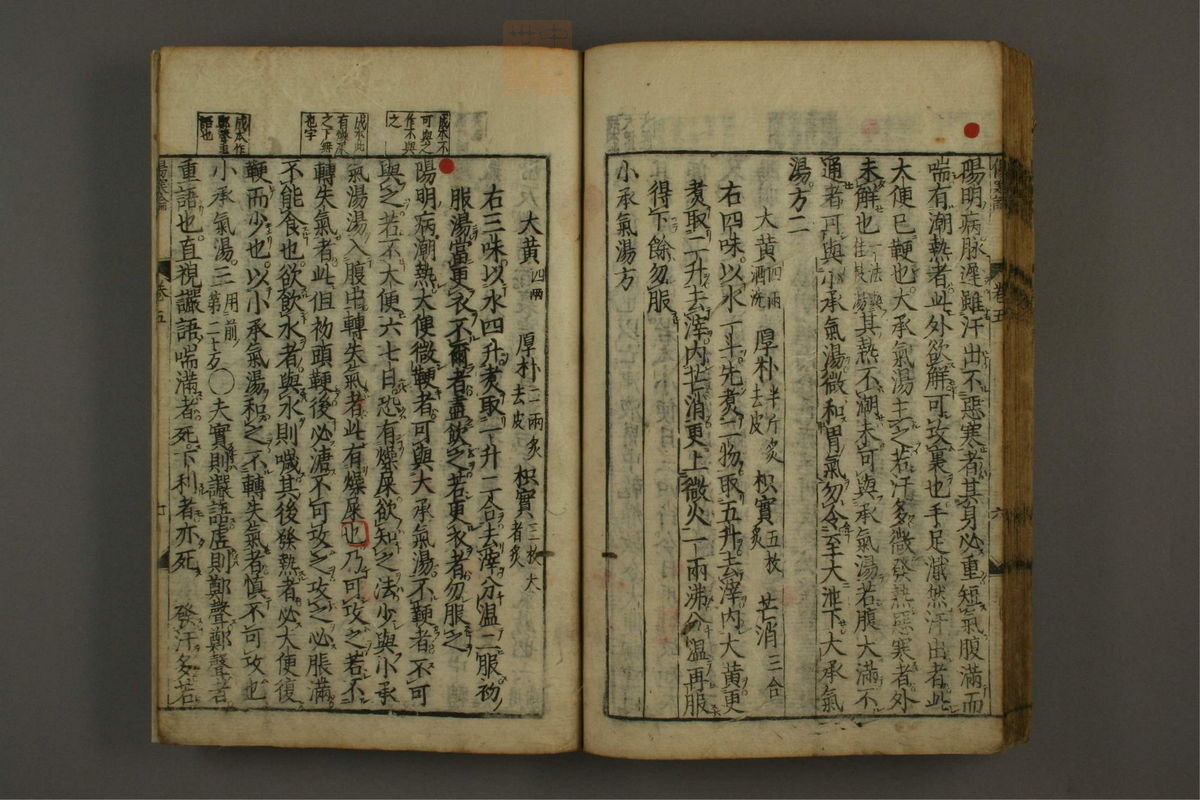 陽明病脉遲雖汗出不惡寒者其身必重短氣腹滿而
喘有潮熱者此外欲解可攻裏也手足濈然汗出者此
大便已鞕也大承氣湯主之若汗多微發熱惡寒者外
未解也一法與桂枝湯其熱不潮未可與承氣湯若腹大滿不
通者可與小承氣湯微和胃氣勿令至大泄下大承氣
湯方二
大黄四兩酒洗 厚朴半斤炙去皮 枳實五枚炙 芒消三合
右四味以水一斗先煑二物取五升去滓内大黄更
煑取二升去滓内芒消更上微火一兩沸分温再服
得下餘勿服
小承氣湯方
傷寒論 卷五 六
大黄四兩 厚朴二兩炙去皮 枳實三枚大者炙
右三味以水四升煑取一升二合去滓分温二服初
服湯當更衣不爾者盡飲之若更衣者勿服之
陽明病潮熱大便微鞕者可與大承氣湯不鞕者不可
與之若不大便六七日恐有燥屎欲知之法少與小承
氣湯湯入腹中轉失氣者此有燥屎也乃可攻之若不
轉失氣者此但初頭鞕後必溏不可攻之攻之必脹滿
不能食也欲飲水者與水則噦其後發熱者必大便復
鞕而少也以小承氣湯和之不轉失氣者慎不可攻也
小承氣湯三用前第二方〇夫實則讝語虚則鄭聲鄭聲者
重語也直視讝語喘滿者死下利者亦死 發汗多若
傷寒論 卷五 七
成本不
可與之
作不與
之
成本此
有燥屎
之下無
也字
成本作
語也